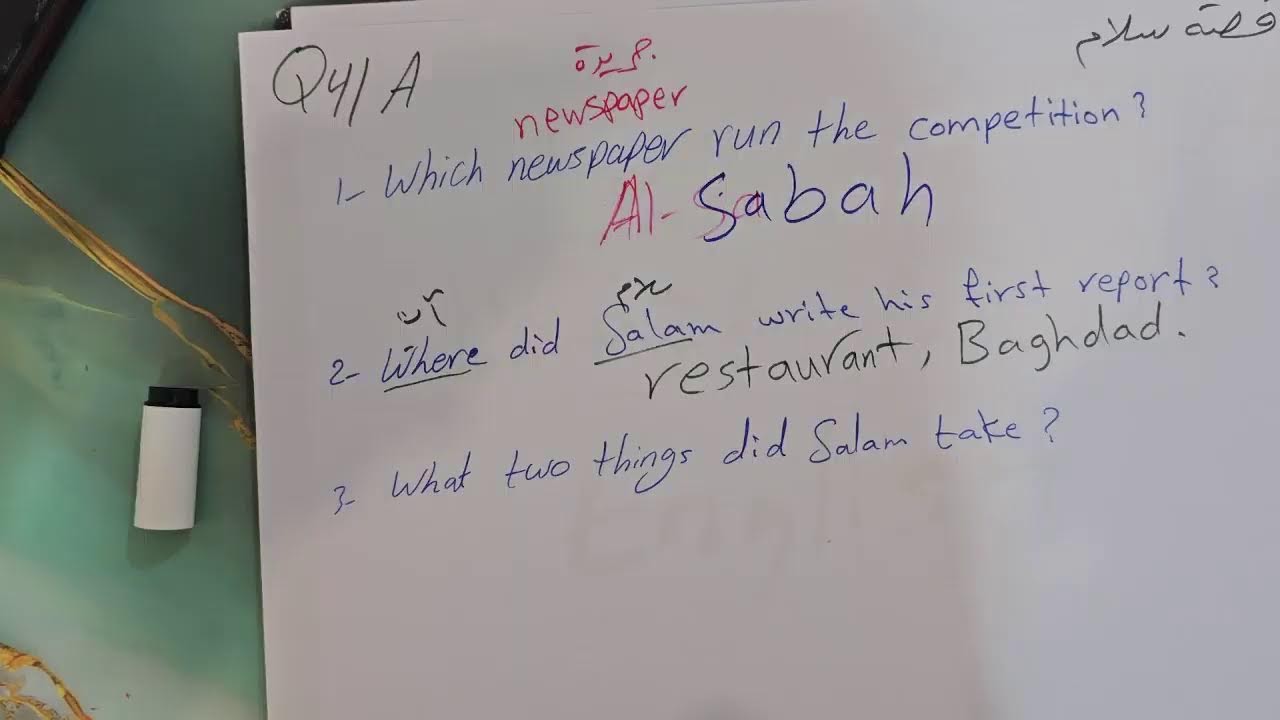 قصة سلام
Q4/A
جريدة
newspaper
1- Which newspaper run the competition?
Al-Sabah
اين
2- Where did Salam write his first report?
restaurant, Baghdad.
3- What two things did Salam take?